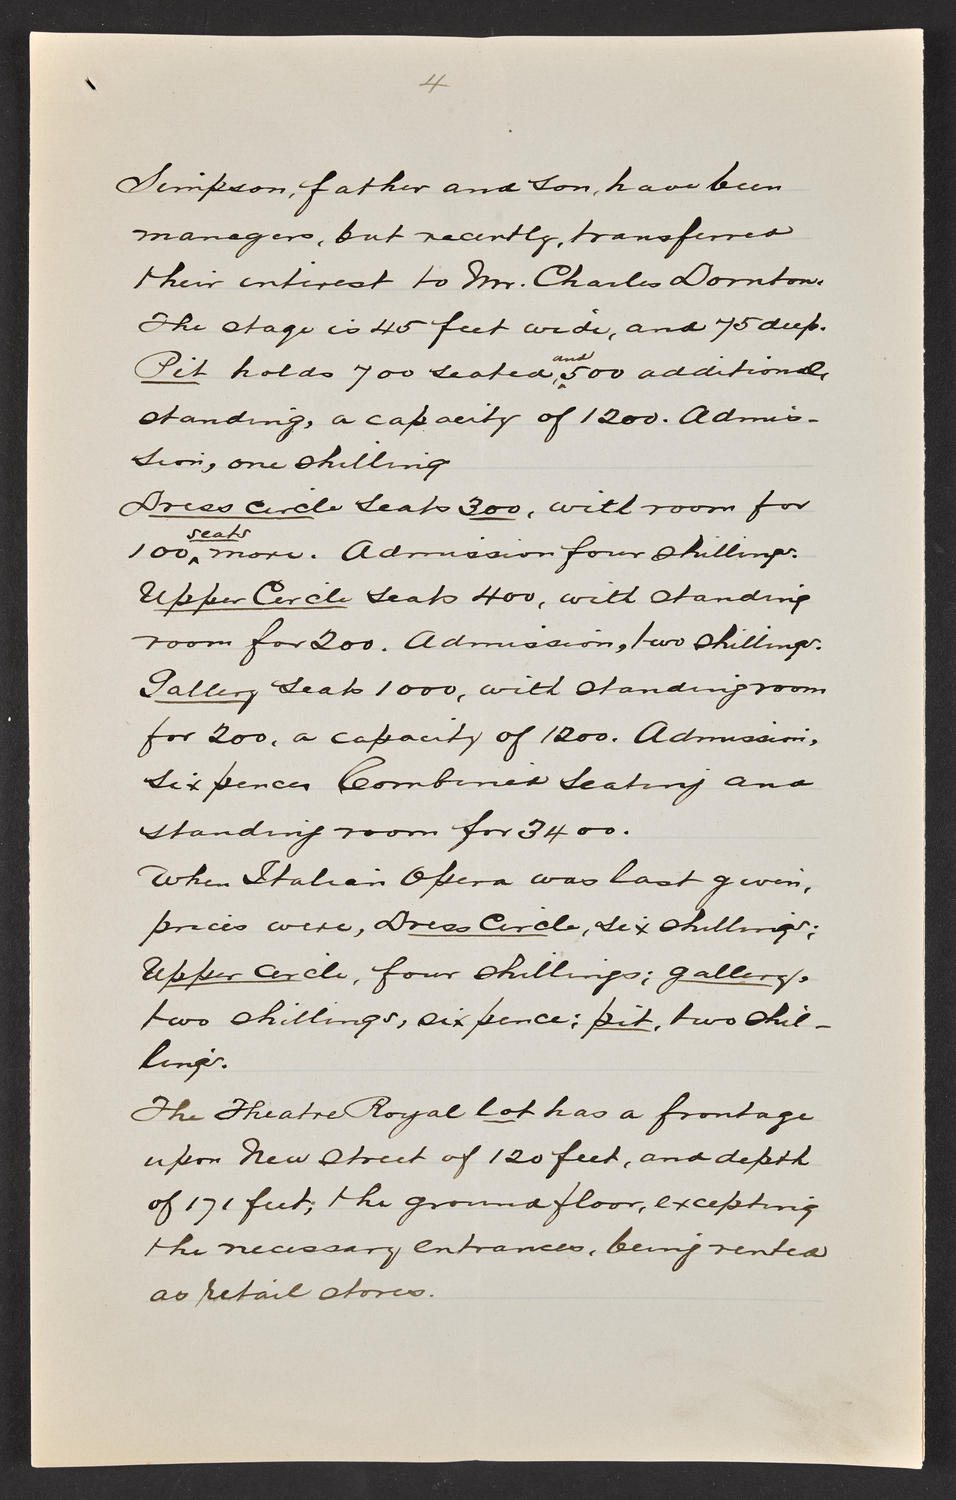 4
Simpson, father and son, have been
managers, but recently, transferred
their interest to Mr. Charles Dornton.
The stage is 45 feet wide, and 75 deep.
Pit holds 700 seated, and 500 additional,
standing, a capacity of 1200. Admis-
sion, one shilling
Dress circle seats 300, with room for
100 seats more. Admission four shillings.
Upper Circle seats 400, with standing
room for 200. Admission, two shillings.
Gallery seats 1000, with standing room
for 200, a capacity of 1200. Admission,
six pence. Combined seating and
standing room for 3400.
When Italian Opera was last given,
prices were, Dress Circle, six shillings;
Upper circle, four shillings; gallery,
two shillings, six pence; pit, two shil-
lings.
The Theatre Royal lot has a frontage
upon New Street of 120 feet, and depth
of 171 feet; the ground floor, excepting
the necessary entrances, being rented
as retail stores.